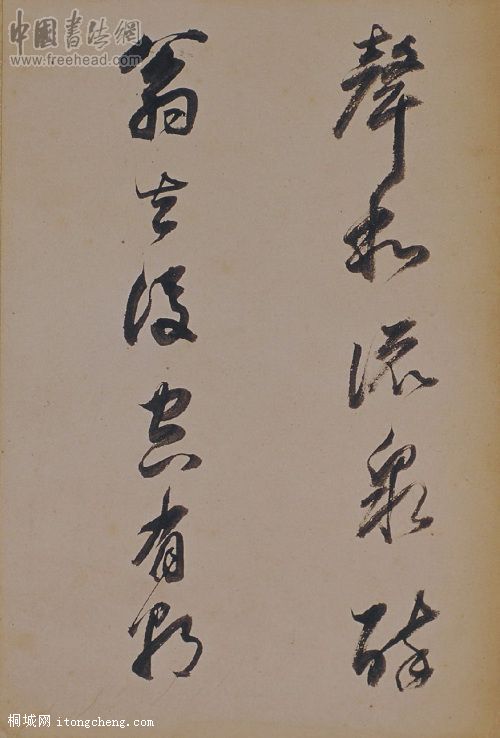 中國書法網
www.freehead.com
聲和流泉醉
翁去後空有朝
桐城网 itongcheng.com